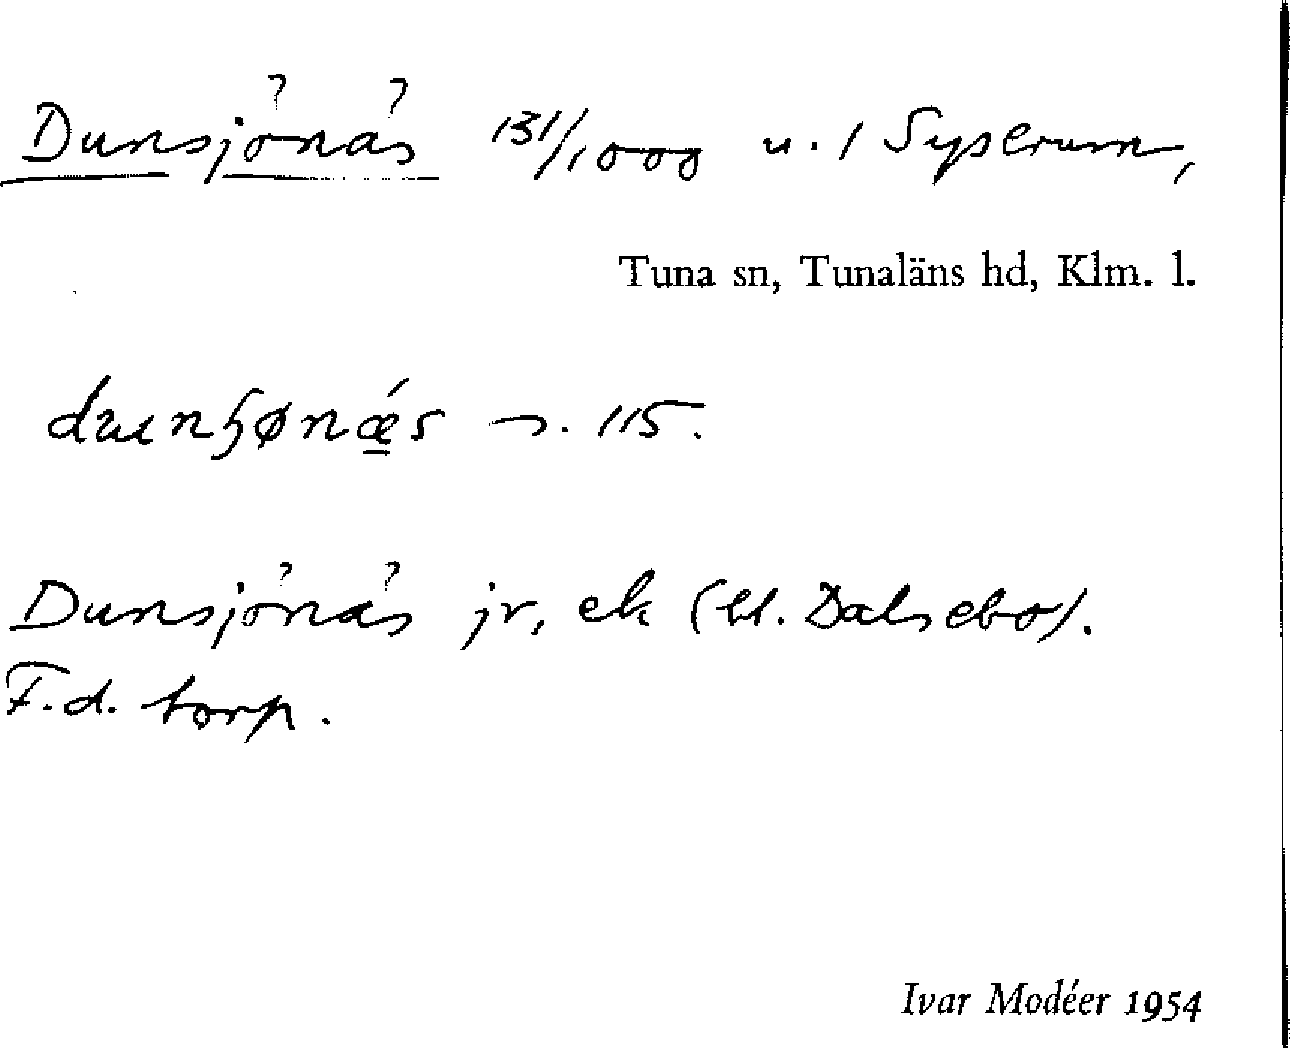 Dunsjönäs 131/1000 u. 1 Syserum,
Tuna sn, Tunaläns hd, Klm. l.
s. 115.
Dunsjönäs jr, ek (bl. Dalsebo).
F.d. torp.
Ivar Modéer 1954